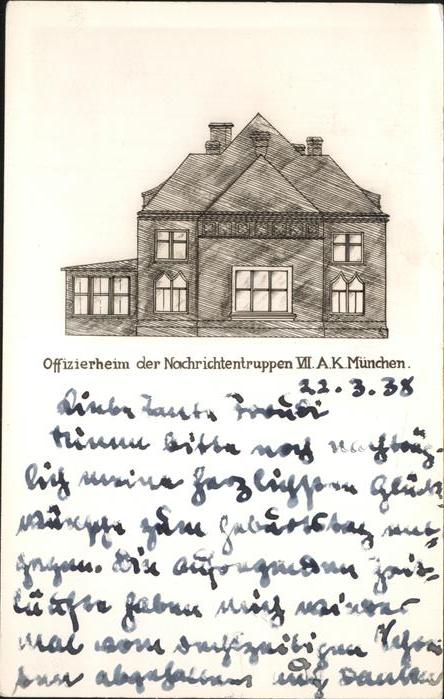 Offizierheim der Nachrichtentruppen VII. A.K. München.
22.3.38
Liebe Tante Froudi
Nimm bitte noch nachträg-
lich meine herzlichsten Glück-
wünsche zum Geburtstag ent-
gegen. Die aufregenden Zeit-
läufte haben mich wieder
mal vom rechtzeitigen Schrei-
ben abgehalten und